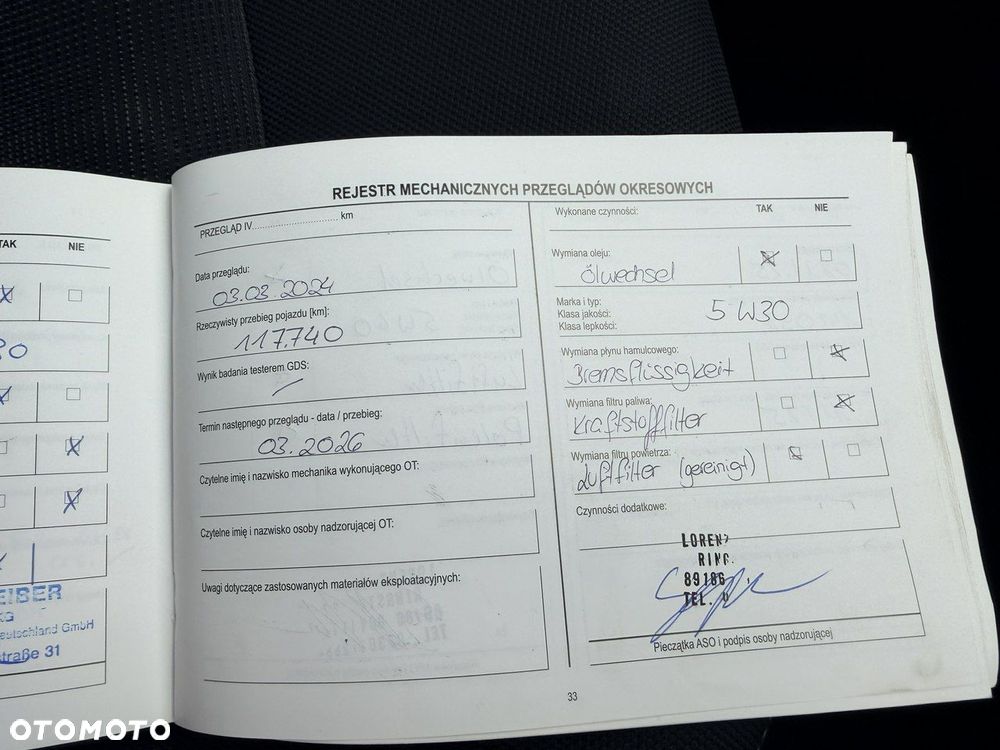 TAK NIE
EIBER
KG
Deutschland GmbH
straße 31
REJESTR MECHANICZNYCH PRZEGLĄDÓW OKRESOWYCH
PRZEGLĄD IV.............................. km
Data przeglądu:
03.03.2024
Rzeczywisty przebieg pojazdu [km]:
117.740
Wynik badania testerem GDS:
Termin następnego przeglądu - data / przebieg:
03.2026
Czytelne imię i nazwisko mechanika wykonującego OT:
Czytelne imię i nazwisko osoby nadzorującej OT:
Uwagi dotyczące zastosowanych materiałów eksploatacyjnych:
Wykonane czynności: TAK NIE
Wymiana oleju:
Ölwechsel
Marka i typ:
Klasa jakości:
Klasa lepkości:
5 W30
Wymiana płynu hamulcowego:
Bremsflüssigkeit
Wymiana filtru paliwa:
Kraftstofffilter
Wymiana filtru powietrza:
Luftfilter (gereinigt)
Czynności dodatkowe:
LORENZ
RING
89186
TEL.
Pieczątka ASO i podpis osoby nadzorującej
33
OTOMOTO